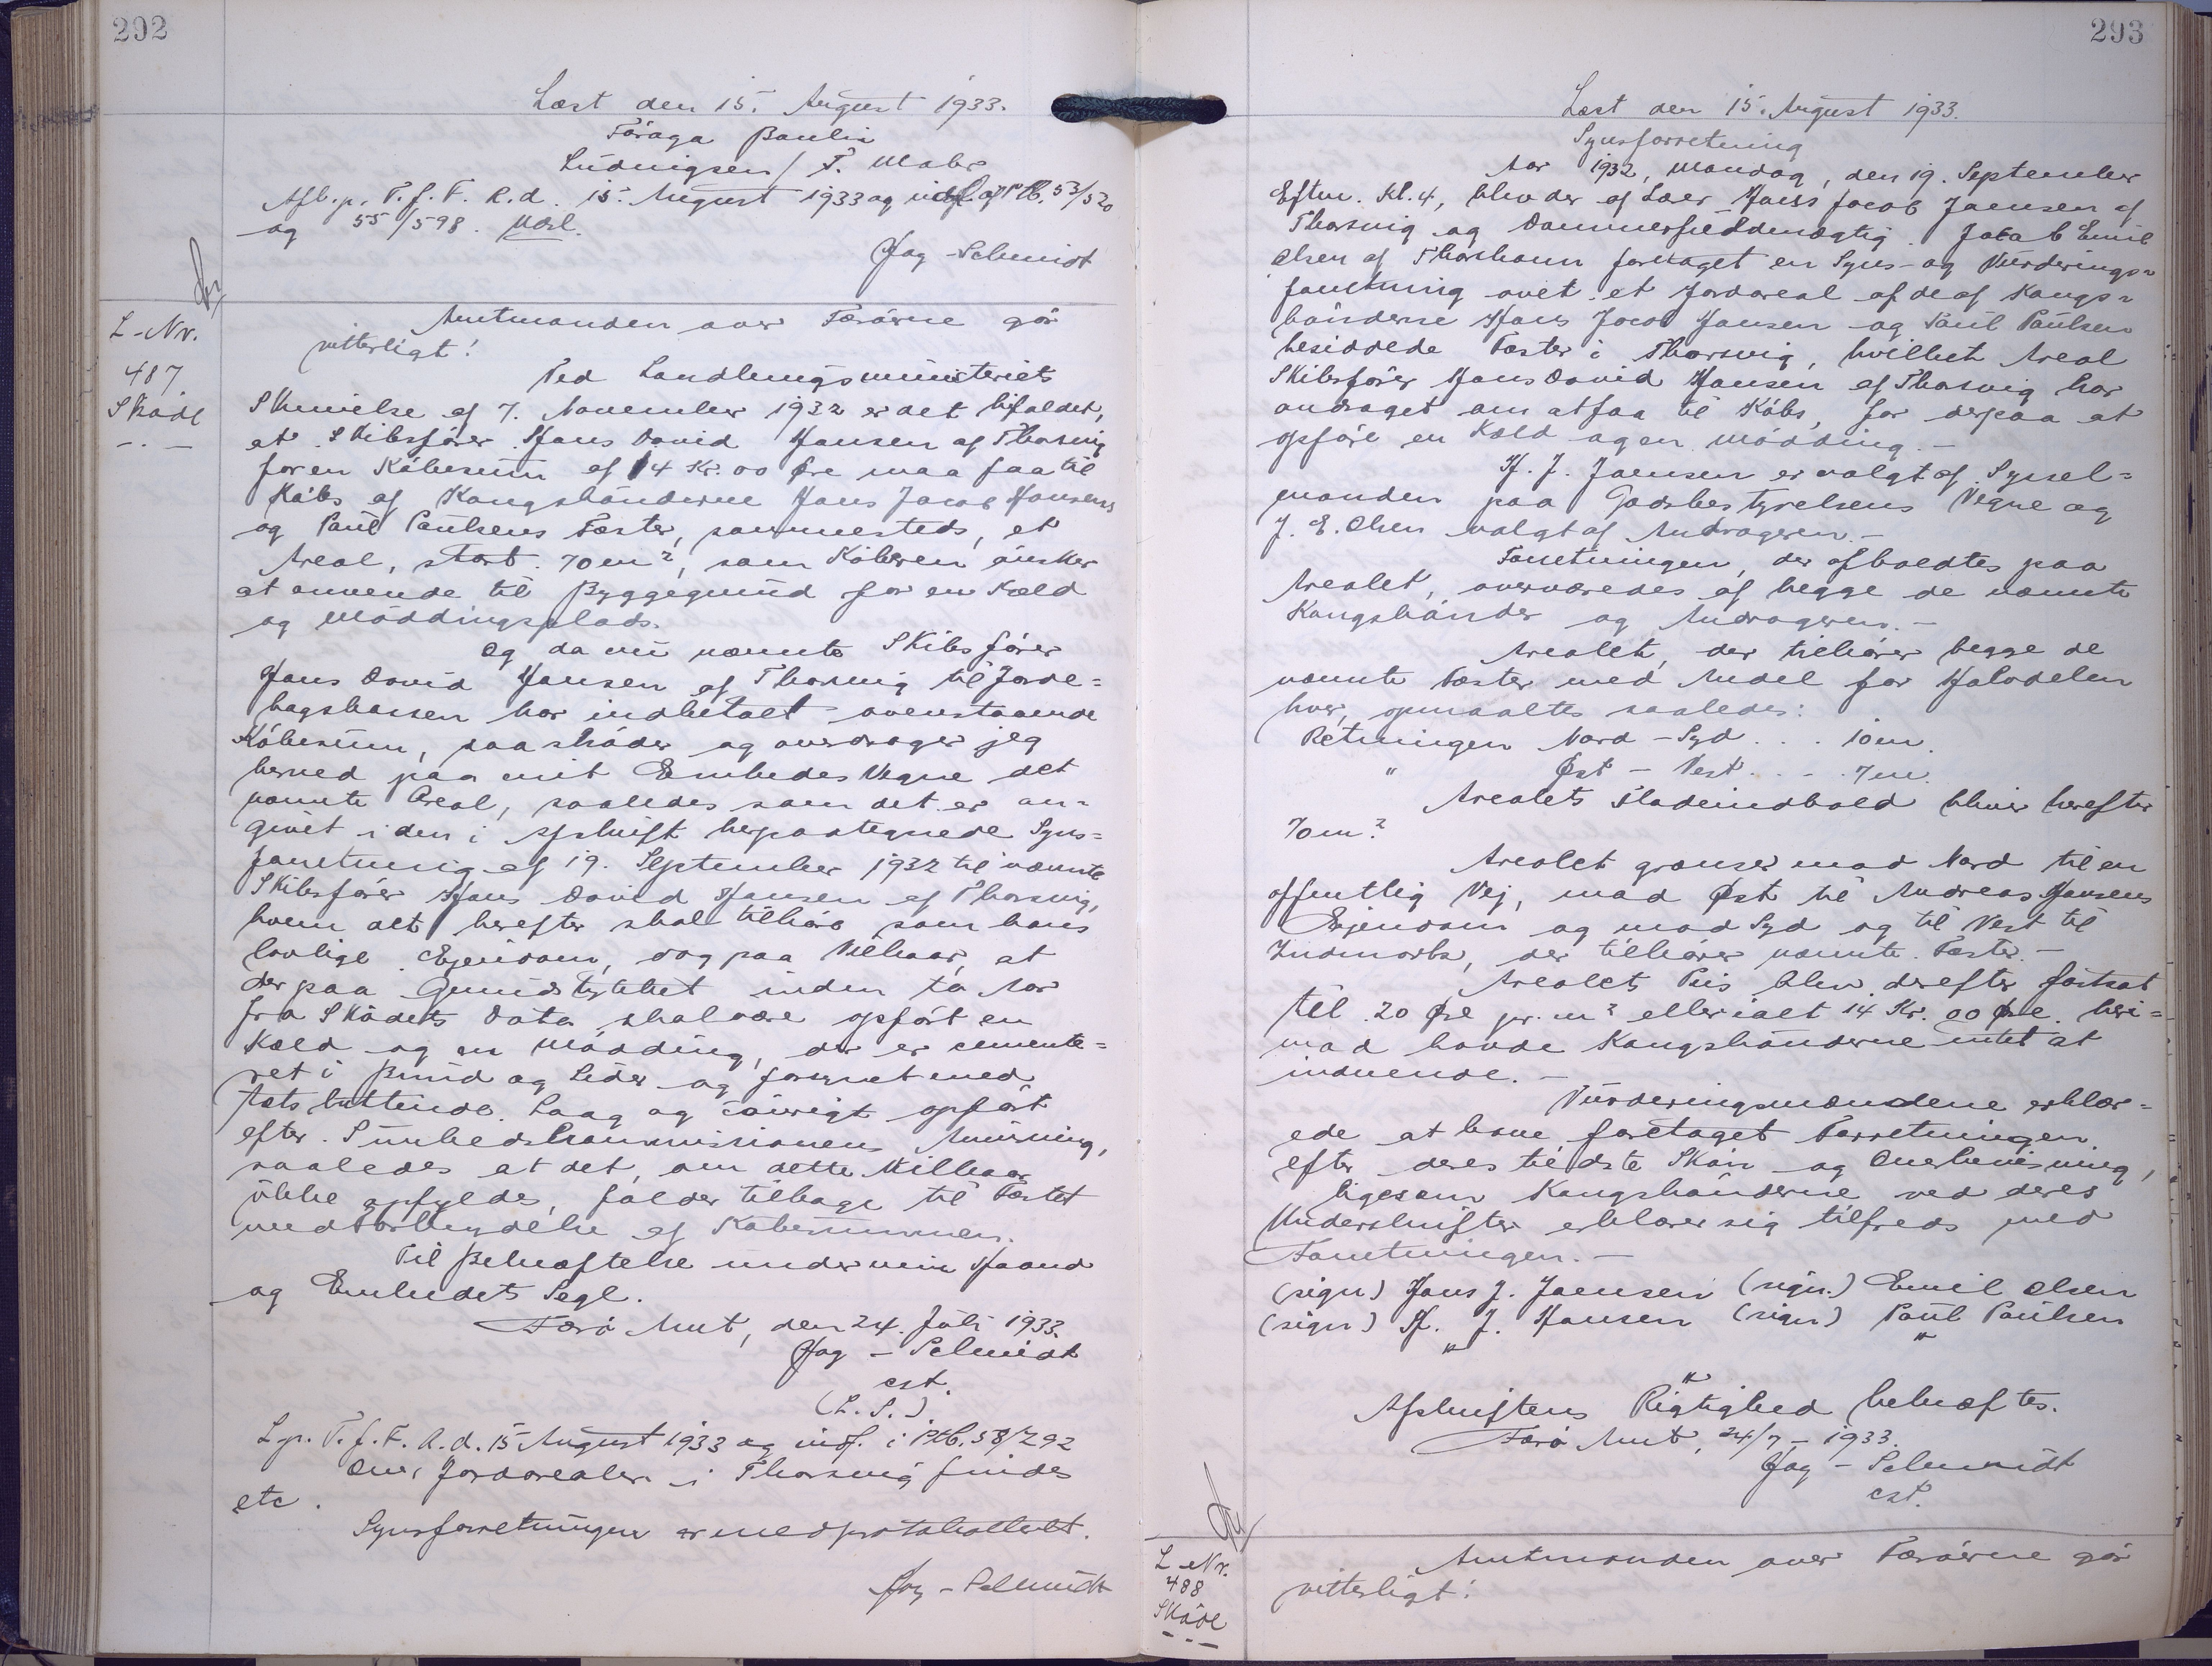 292
Læst den 15. August 1933.
Föroya Banki
Ludvigsen / F. Mohr
Afl. p. T. f. F. R. d. 15. August 1933 og indf. af Ptb. 53/520
og 55/598. Udsl.
Jog - Schmidt
L-Nr.
487
Sköde
Amtmanden over Færöerne gör
vitterligt!
Ved Landbrugsministeriets
Skrivelse af 7. November 1932 er det bifaldet,
at Skibsförer Hans David Hansen af Thorsvig
for en Köbesum af 14 Kr. 00 Øre maa faa til
Köbs af Kongsbönderne Hans Jacob Hansens
og Poul Poulsens Fæster, sammesteds, et
Areal, stort 70 m², som Köberen önsker
at anvende til Byggegrund for en Kæld
og Möddingsplads.
Og da nu nævnte Skibsförer
Hans David Hansen af Thorsvig til Jorde=
bogskassen har indbetalt ovenstaaende
Köbesum, saa sköder og overdrager jeg
herved paa mit Embedes Vegne det
nævnte Areal, saaledes som det er an=
givet i den i Afskrift herpaategnede Syns=
forretning af 19. September 1932 til nævnte
Skibsförer Hans David Hansen af Thorsvig,
hvem alt herefter skal tilhöre som hans
lovlige Ejendom, dog paa Vilkaar, at
der paa Grundstykket inden to Aar
fra Sködets Dato skal være opfört en
Kæld og en Mödding, der er cemente=
ret i Bund og Sider og forsynet med
tætsluttende Laag og iövrigt opfört
efter Sundhedskommissionens Anvisning,
saaledes at det, om dette Vilkaar
ikke opfyldes, falder tilbage til Fæstet
med Fortrydelse af Köbesummen.
Til Bekræftelse under min Haand
og Embedets Segl.
Færö Amt, den 24. Juli 1933.
Jog - Schmidt
cst.
(L. S.)
L. p. T. f. F. R. d. 15 August 1933 og indf. i Ptb. 58/292
Over Jordarealer i Thorsvig findes
etc.
Synsforretningen er medprotokolleret.
Jog - Schmidt
293
Læst den 15. August 1933.
Synsforretning
Aar 1932, Mandag, den 19. September
Eftm. Kl. 4, blev der af Lærer Hans Jacob Joensen af
Thorsvig og Dommerfuldmægtig Jacob Emil
Olsen af Thorshavn foretaget en Syns- og Vurderings=
forretning over et Jordareal af de af Kongs=
bönderne Hans Jacob Hansen og Poul Poulsen
besiddede Fæster i Thorsvig, hvilket Areal
Skibsförer Hans David Hansen af Thorsvig har
andraget om at faa til Köbs, for derpaa at
opföre en Kæld og en Mödding.-
H. J. Joensen er valgt af Syssel=
manden paa Godsbestyrelsens Vegne og
J. E. Olsen valgt af Andrageren.-
Forretningen, der afholdtes paa
Arealet, overværedes af begge de nævnte
Kongsbönder og Andrageren.-
Arealet, der tilhörer begge de
nævnte Fæster med Andel for Halvdelen
hver, opmaaltes saaledes:
Retningen Nord - Syd . . . 10 m.
" Øst - Vest . . . 7 m.
Arealets Fladeindhold bliver herefter
70 m².
Arealet grænser mod Nord til en
offentlig Vej, mod Øst til Andreas Hansens
Ejendom og mod Syd og til Vest til
Indmark, der tilhörer nævnte Fæster.-
Arealets Pris blev derefter fastsat
til 20 Øre pr. m² eller ialt 14 Kr. 00 Øre. heri=
mod havde Kongsbönderne intet at
indvende.-
Vurderingsmændene erklær=
ede at have foretaget Forretningen
efter deres bedste Skön og Overbevisning,
ligesom Kongsbönderne ved deres
Underskrifter erklærer sig tilfreds med
Forretningen.-
(sign) Hans J. Joensen (sign.) Emil Olsen
(sign) H. J. Hansen (sign) Poul Poulsen
" "
"
Afskriftens Rigtighed bekræftes.
Færö Amt, 24/7 - 1933.
Jog - Schmidt
cst.
L-Nr.
488
Sköde
Amtmanden over Færöerne gör
vitterligt!